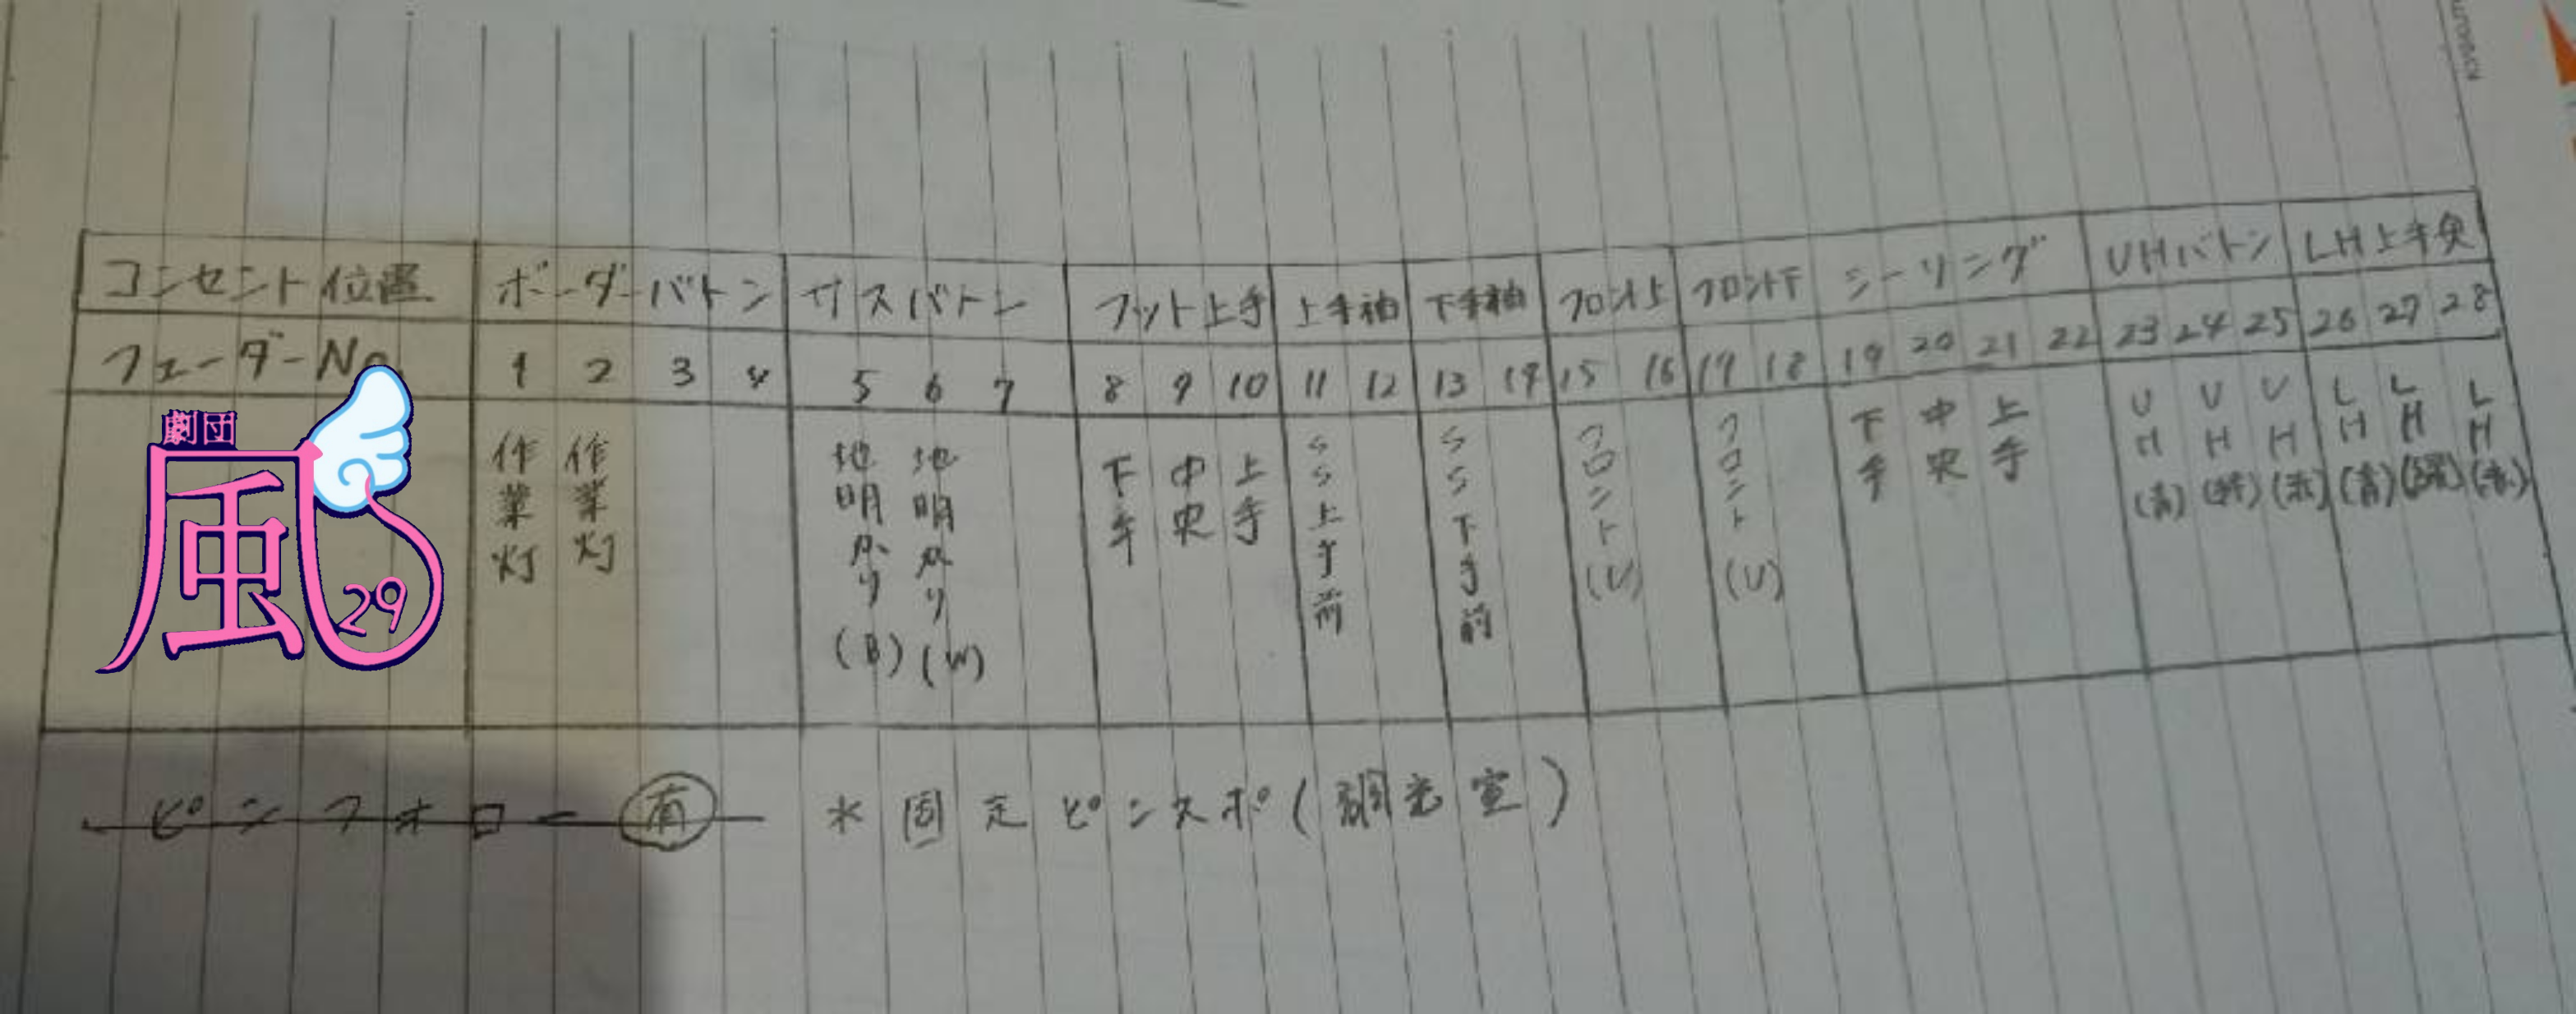 コンセント位置 ボーダーバトン サスバトン フット上手 上手袖 下手袖 フロント上 フロント下 シーリング UHバトン LH上手奥
フェーダーNo. 1 2 3 4 5 6 7 8 9 10 11 12 13 14 15 16 17 18 19 20 21 22 23 24 25 26 27 28
劇団
風
29
作業灯
作業灯
地明かり(B)
地明かり(W)
下手
中央
上手
SS上手前
SS下手前
フロント(U)
フロント(U)
下手
中央
上手
UH(青)
UH
UH(赤)
LH(青)
LH
LH(赤)
ピンフォロー 有 * 固定ピンスポ(調光室)